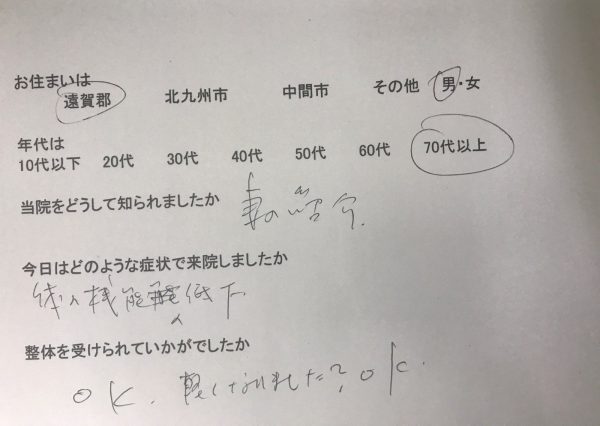 お住まいは
遠賀郡 北九州市 中間市 その他 男・女
年代は
10代以下 20代 30代 40代 50代 60代 70代以上
当院をどうして知られましたか
妻の紹介.
今日はどのような症状で来院しましたか
体の機能低下
整体を受けられていかがでしたか
OK. 軽くなりました?OK.